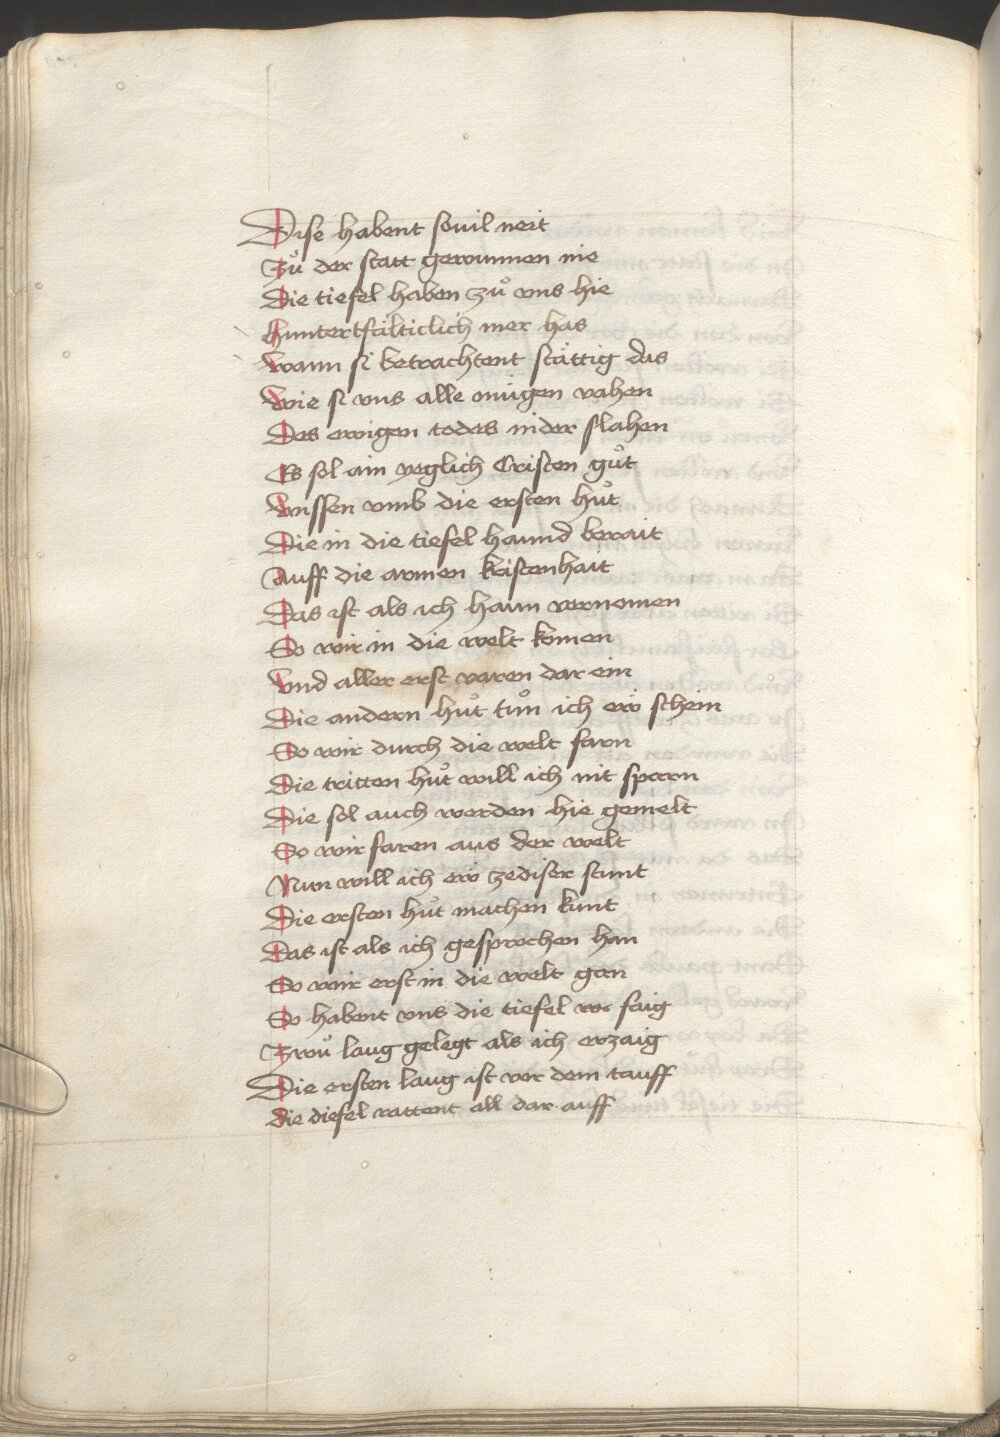 Dise habent souil neit
Zů der statt gewunnen nie
Die tiefel haben zů vns hie
Huntertfälticlich mer has
Wann si betrachtent stättig das
Wie si vns alle mügen vahen
Des ewigen todes nider slahen
Es sol ain yeglich Cristen gůt
Wissen vmb die ersten hůt
Die in die tiefel haund berait
Auff die armen kristenhait
Das ist als ich haun vernomen
So wir in die welt komen
Vnd aller erst varen dar ein
Die andern hůt tůn ich ew schein
So wir durch die welt farn
Die tritten hůt will ich nit sparn
Die sol auch werden hie gemelt
So wir faren aus der welt
Nun will ich ew ze diser stunt
Die ersten hůt machen kunt
Das ist als ich gesprochen han
So wir erst in die welt gan
So habent vns die tiefel vor faig
Zwů laug gelegt als ich erzaig
Die ersten laug ist vor dem tauff
Die diefel rattent all dar auff